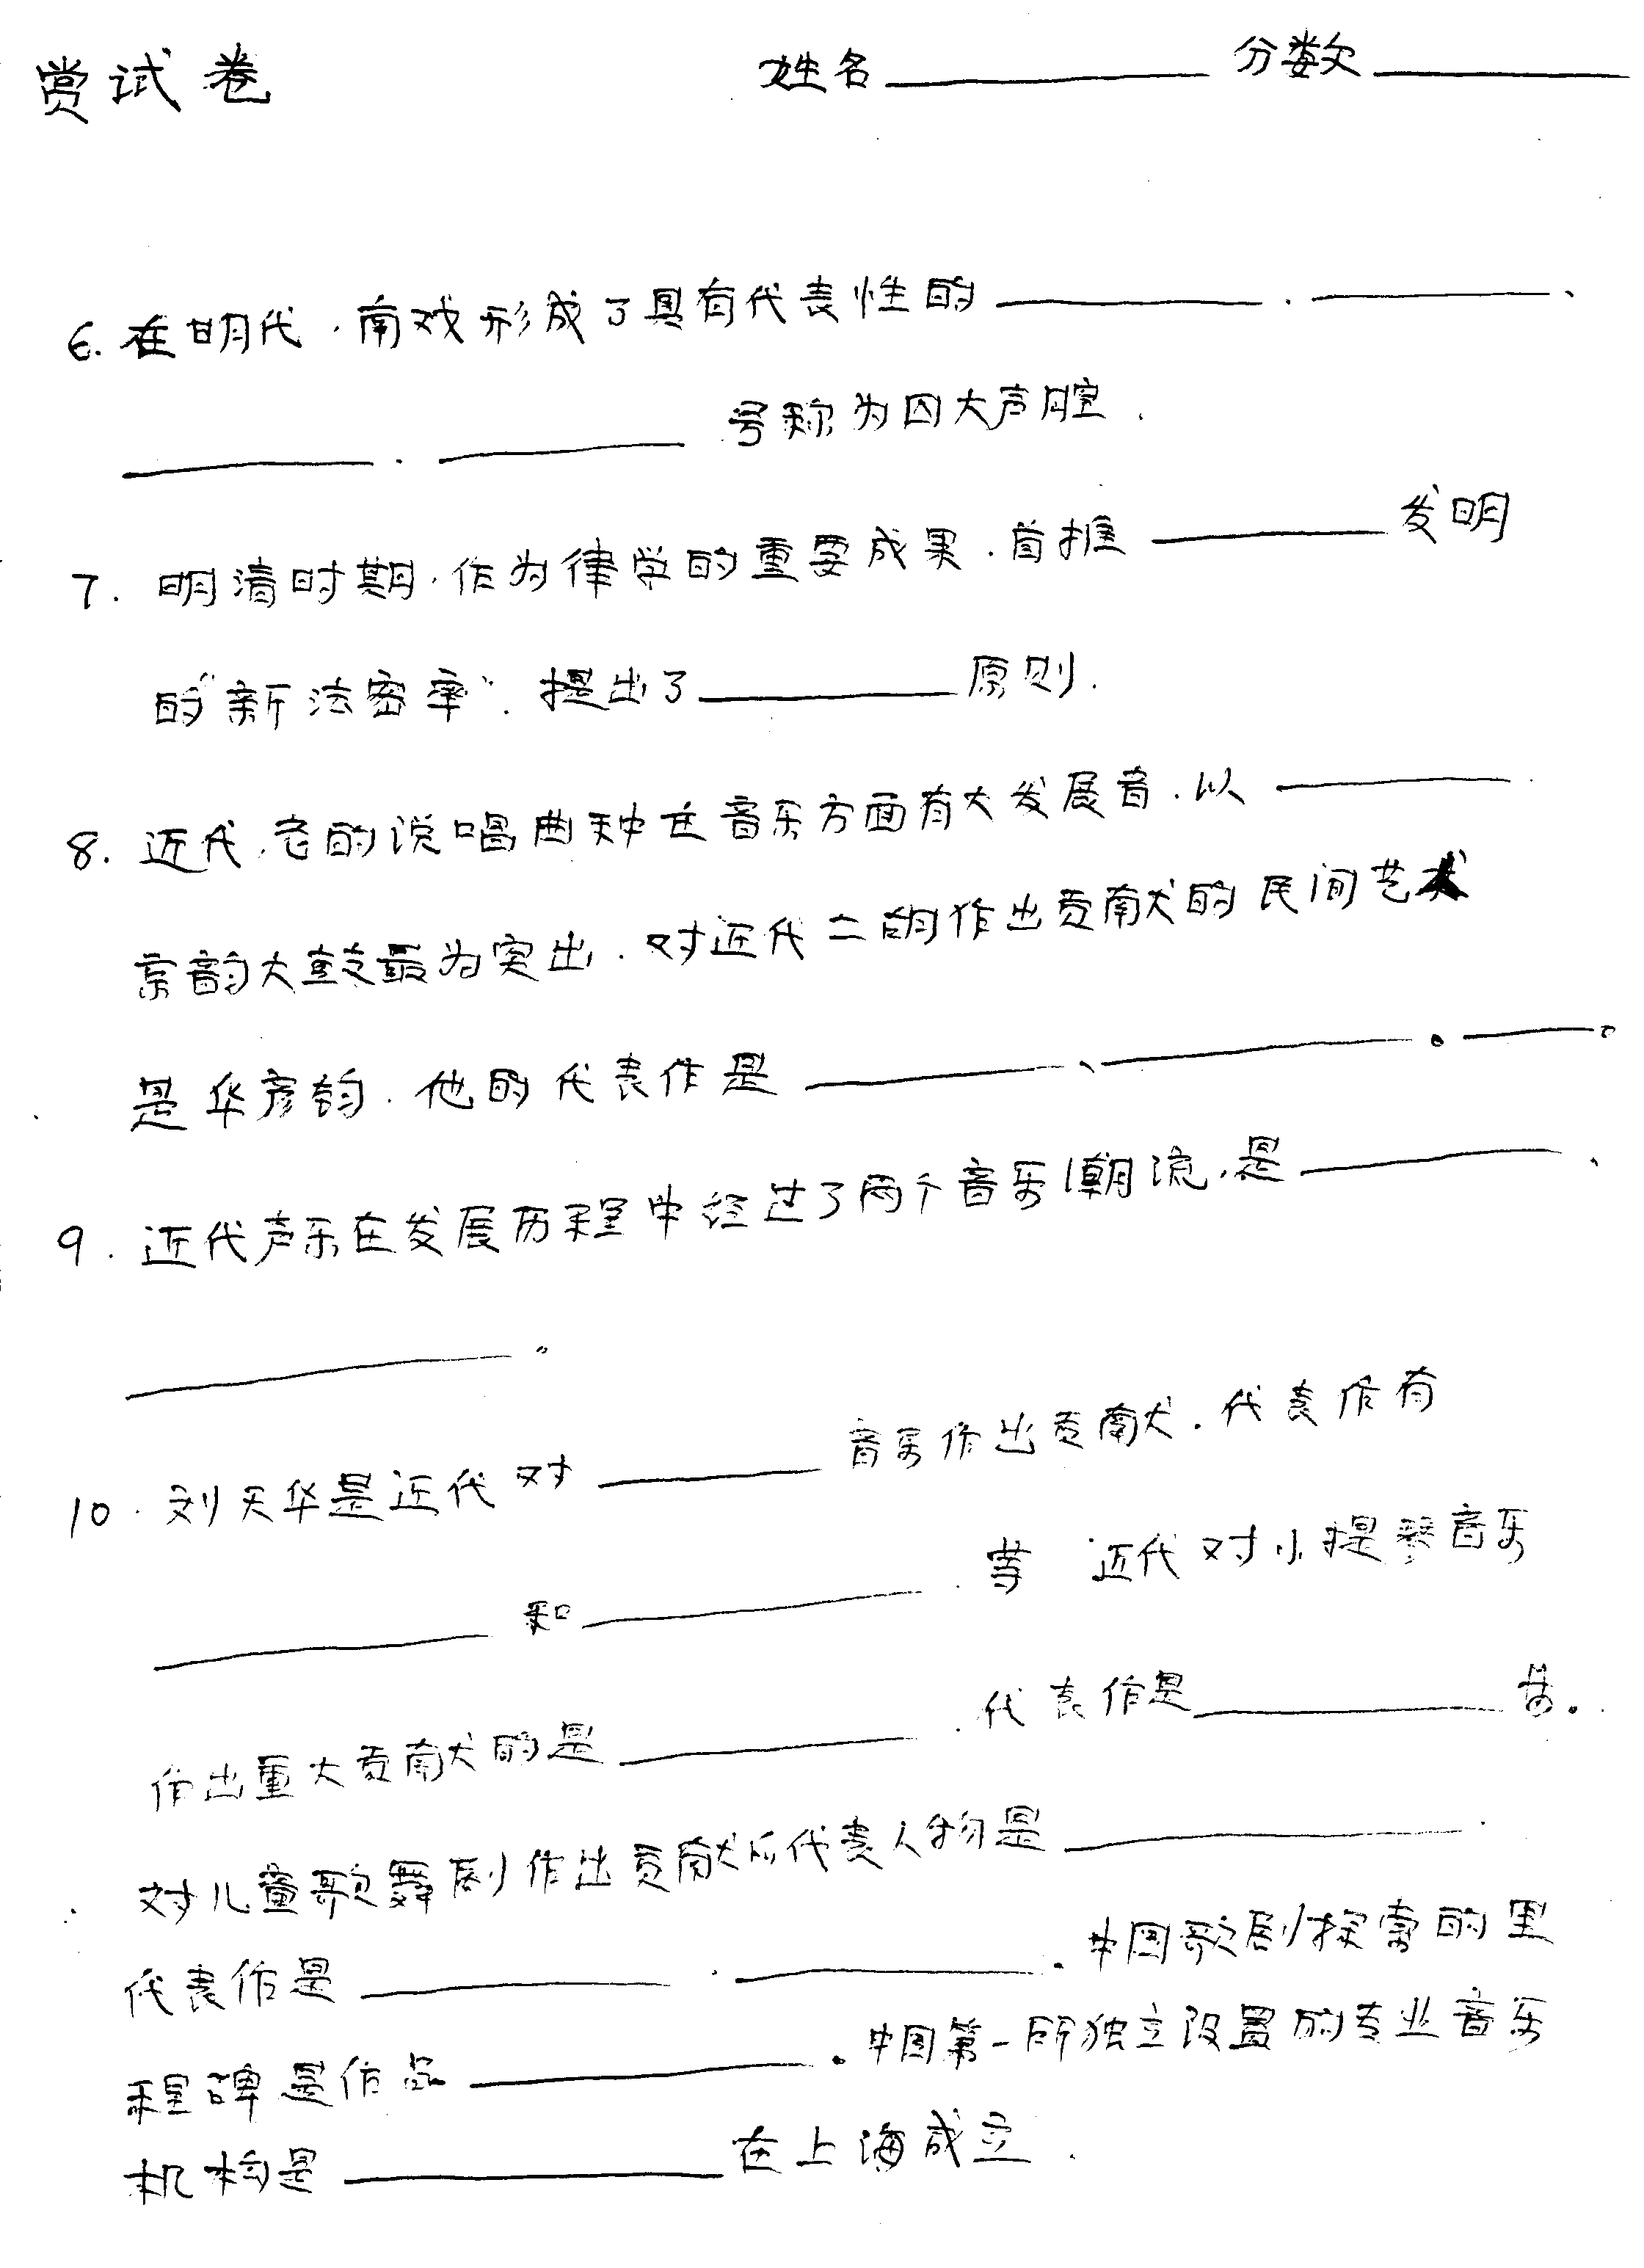 赏试卷 姓名 分数
6. 在明代，南戏形成了具有代表性的 、 、
、 号称为四大声腔．
7. 明清时期，作为律学的重要成果．首推 发明
的“新法密率”．提出了 原则．
8. 近代，老的说唱曲种在音乐方面有大发展音．以
京韵大鼓最为突出．对近代二胡作出贡献的民间艺术
是华彦钧．他的代表作是 、 。 。
9. 近代声乐在发展历程中经过了两个音乐潮流，是 、
。
10. 刘天华是近代对 音乐作出贡献．代表作有
和 等 近代对小提琴音乐
作出重大贡献的是 ．代表作是 曲．
对儿童歌舞剧作出贡献的代表人物是
代表作是 ． ．中国歌剧探索的里
程碑是作品 ．中国第一所独立设置的专业音乐
机构是 在上海成立．